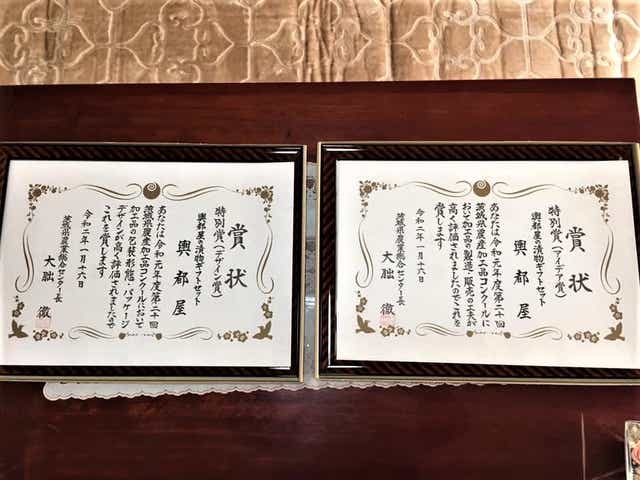 賞状
特別賞(デザイン賞)
與都屋の漬物ギフトセット
與都屋
あなたは令和元年度第二十回
茨城県農産加工品コンクールにおいて
加工品の包装形態、パッケージ
デザインが高く評価されましたので
これを賞します
令和二年一月十六日
茨城県農業総合センター長
大朏
賞状
特別賞(アイデア賞)
與都屋の漬物ギフトセット
與都屋
あなたは令和元年度第二十回
茨城県農産加工品コンクールに
おいて加工品の製造・販売の工夫が
高く評価されましたのでこれを
賞します
令和二年一月十六日
茨城県農業総合センター長
大朏